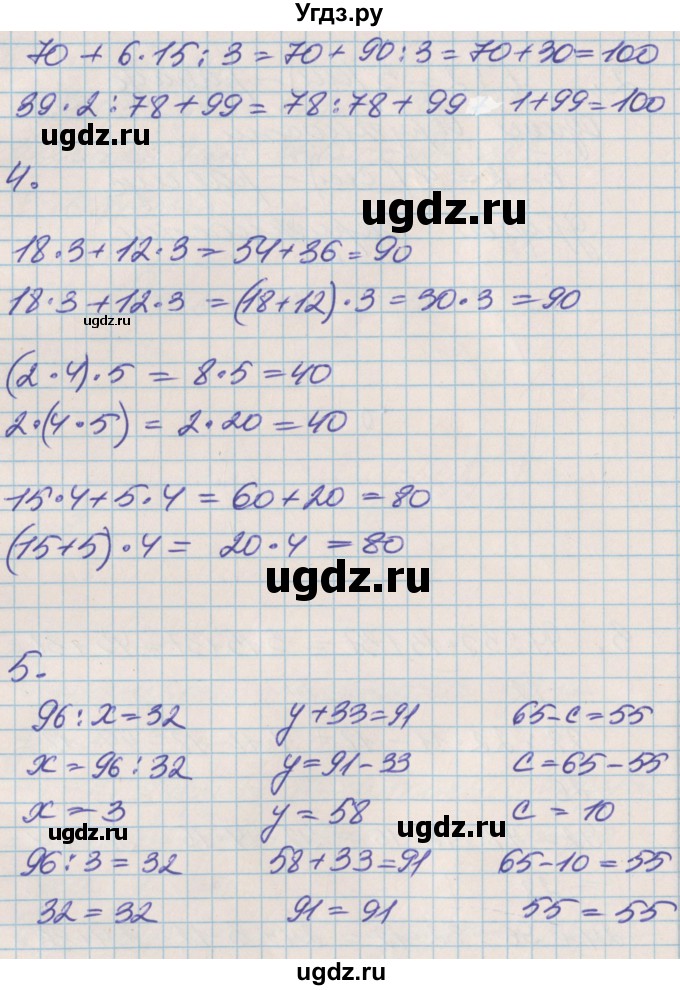 Угдз.ру
70 + 6·15 : 3 = 70 + 90 : 3 = 70 + 30 = 100
39·2 : 78 + 99 = 78 : 78 + 99 1 + 99 = 100
ugdz.ru
4.
ugdz.ru
18·3 + 12·3 = 54 + 36 = 90
18·3 + 12·3 = (18 + 12)·3 = 30·3 = 90
ugdz.ru
(2·4)·5 = 8·5 = 40
2·(4·5) = 2·20 = 40
15·4 + 5·4 = 60 + 20 = 80
(15 + 5)·4 = 20·4 = 80
ugdz.ru
5.
96 : x = 32 y + 33 = 91 65 - c = 55
x = 96 : 32 y = 91 - 33 c = 65 - 55
x = 3 y = 58 c = 10
ugdz.ru ugdz.ru
96 : 3 = 32 58 + 33 = 91 65 - 10 = 55
32 = 32 91 = 91 55 = 55
ugdz.ru